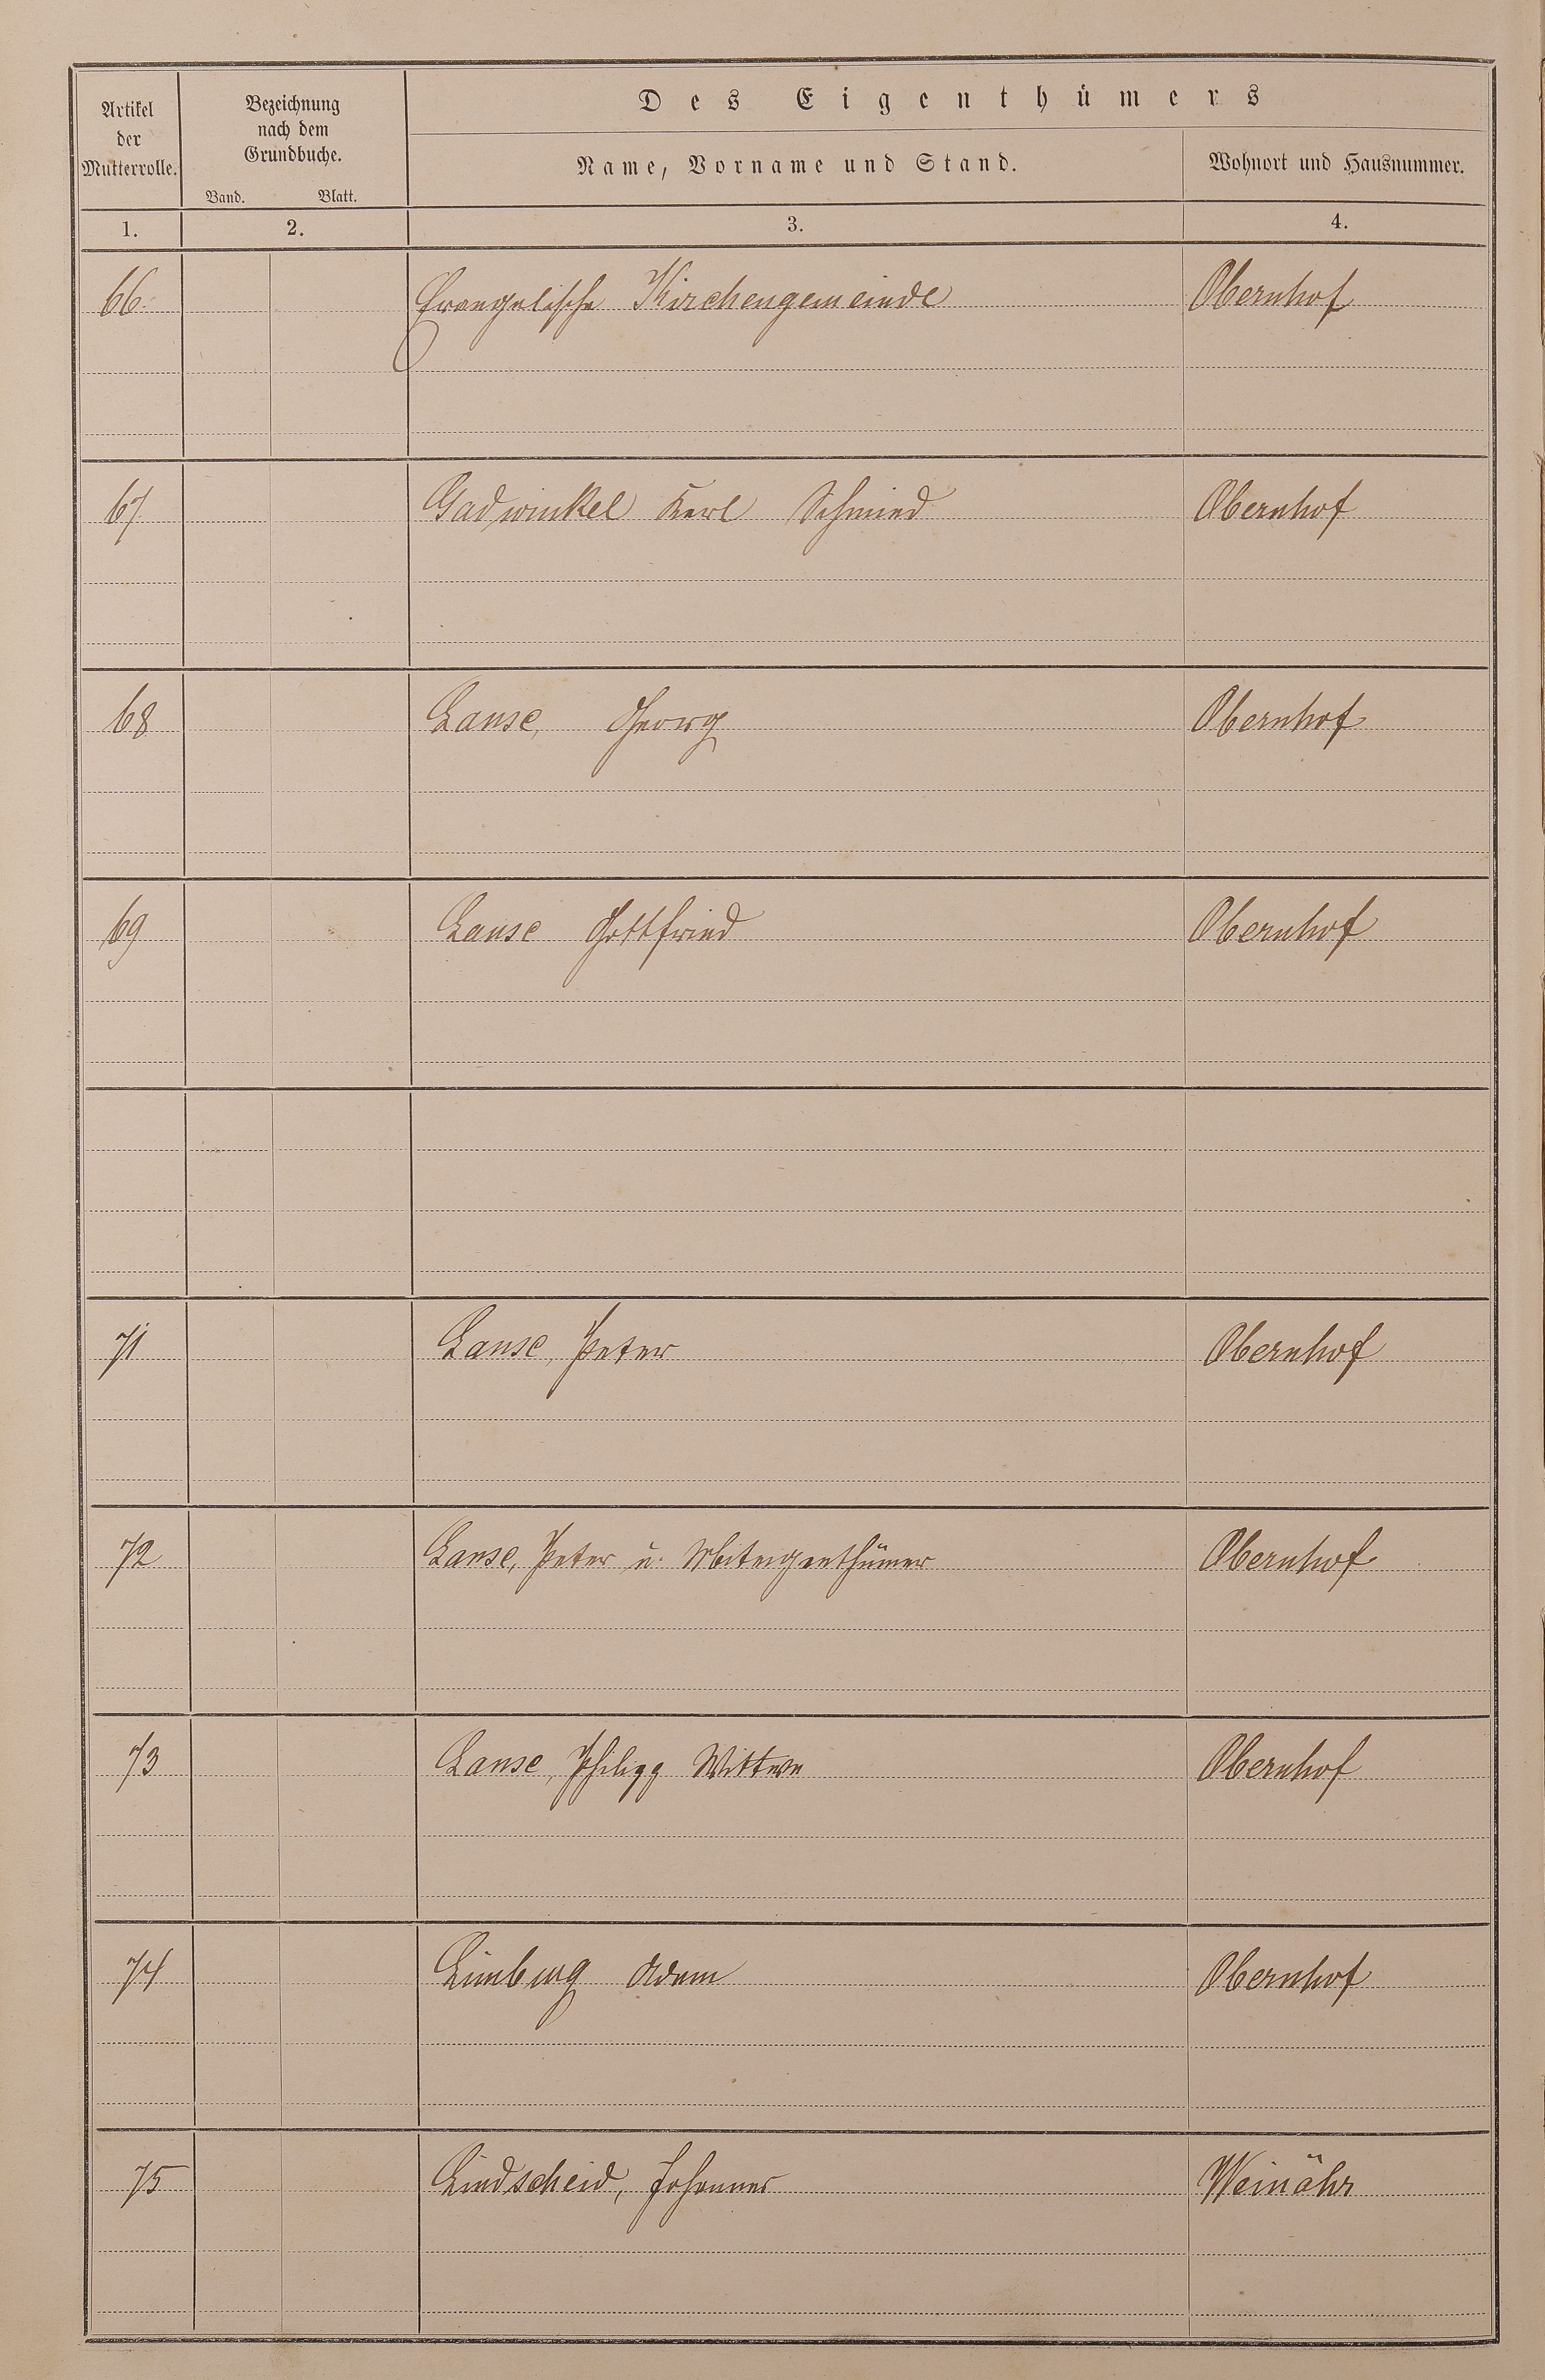 Artikel der Mutterrolle.
Bezeichnung nach dem Grundbuche.
Band. Blatt.
Des Eigenthümers
Name, Vorname und Stand.
Wohnort und Hausnummer.
1. 2. 3. 4.
66. Evangelische Kirchengemeinde Obernhof
67 Karl Schmied Obernhof
68 Lause, Georg Obernhof
69 Lause Gottfried Obernhof
71 Lause, Peter Obernhof
72 Lause, Peter u. Miteigenthümer Obernhof
73 Lause, Philipp Wittwe Obernhof
74 Limburg Adam Obernhof
75 Lindscheid, Johannes Weinähr